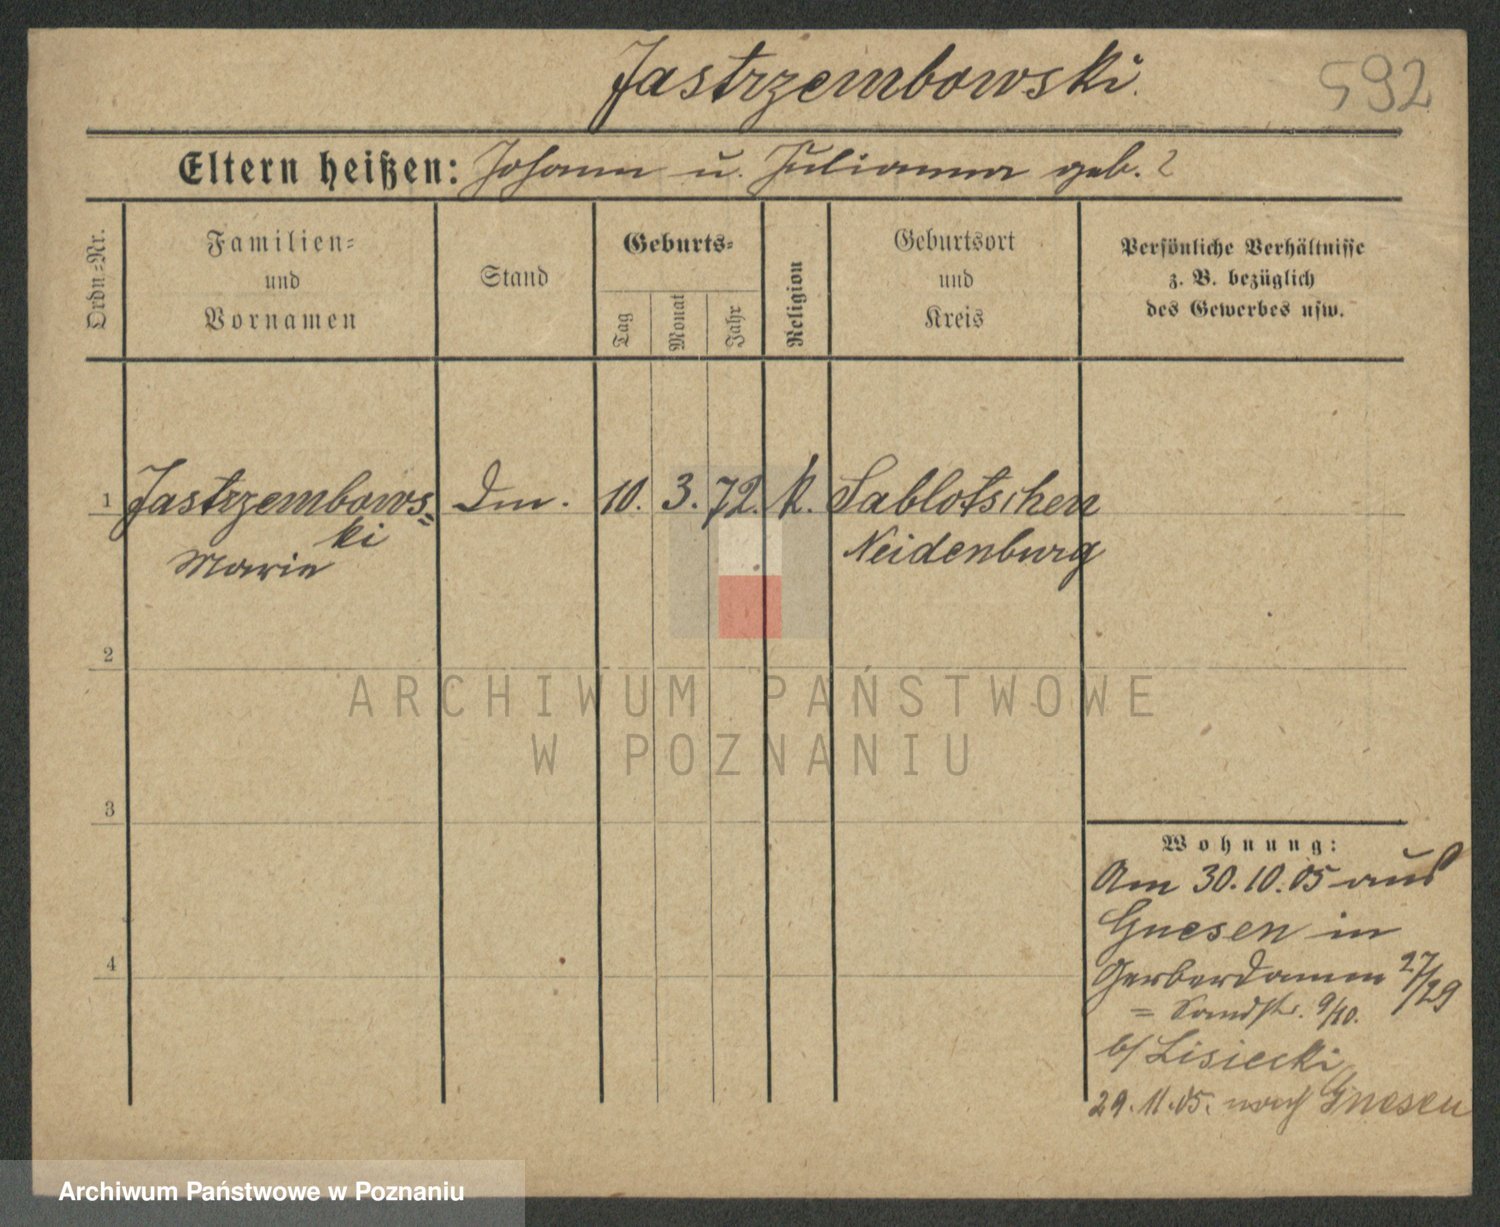 Jastrzembowski.
592
Eltern heißen: Johann u. Julianna geb. ?
Ordn=Nr.
Familien=
und
Vornamen
Stand
Geburts=
Tag
Monat
Jahr
Religion
Geburtsort
und
Kreis
Persönliche Verhältnisse
z. B. bezüglich
des Gewerbes usw.
1 Jastrzembows= Dm. 10. 3. 72. k. Sablotschen
ki
Marie
Neidenburg
2
3
4
Wohnung:
Am 30.10.05 aus
Gnesen in
Gerberdamm 27/29
= Sandstr. 9/10.
b/ Lisiecki
29.11.05. nach Gnesen
ARCHIWUM PAŃSTWOWE
W POZNANIU
Archiwum Państwowe w Poznaniu